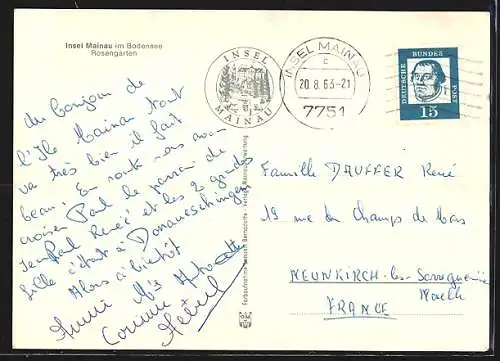 Insel Mainau im Bodensee
Rosengarten
INSEL
MAINAU
INSEL MAINAU
c
20.8.63-21
7751
DEUTSCHE BUNDES POST
15
Un Bonjour de
l'Ile Mainau tout
va très bien il fait
beau. En route nous avons
croisé Paul le parrain de
Jean Paul Renée et les 2 grandes
fille c'était à Donaueschingen
Alors à bientôt
Famille DAUFFER René
19 rue du Champs de Mars
NEUNKIRCH-les-Sarreguemine
Moselle
FRANCE
Corinne